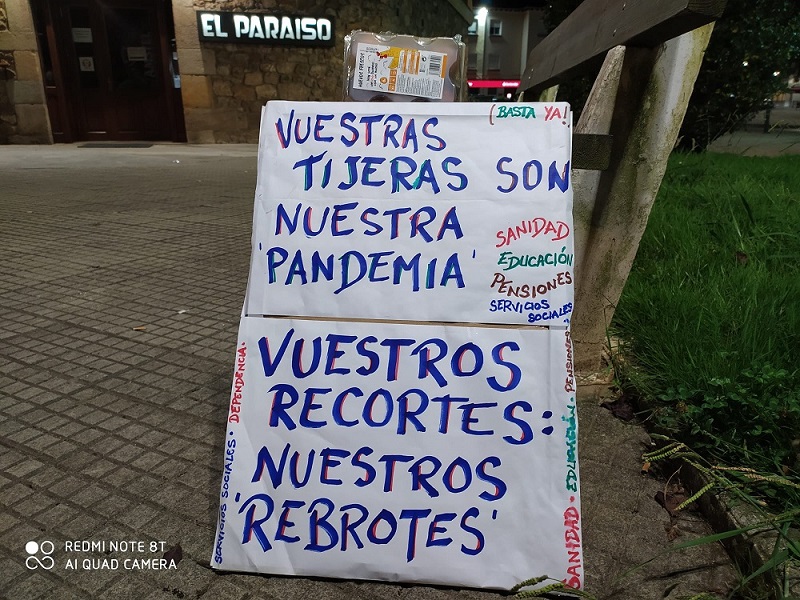 EL PARAISO
¡BASTA YA!
VUESTRAS
TIJERAS SON
NUESTRA
'PANDEMIA'
SANIDAD
EDUCACIÓN
PENSIONES
SERVICIOS
SOCIALES
VUESTROS
RECORTES:
NUESTROS
'REBROTES'
SERVICIOS SOCIALES · DEPENDENCIA ·
SANIDAD · EDUCACIÓN · PENSIONES ·
REDMI NOTE 8T
AI QUAD CAMERA